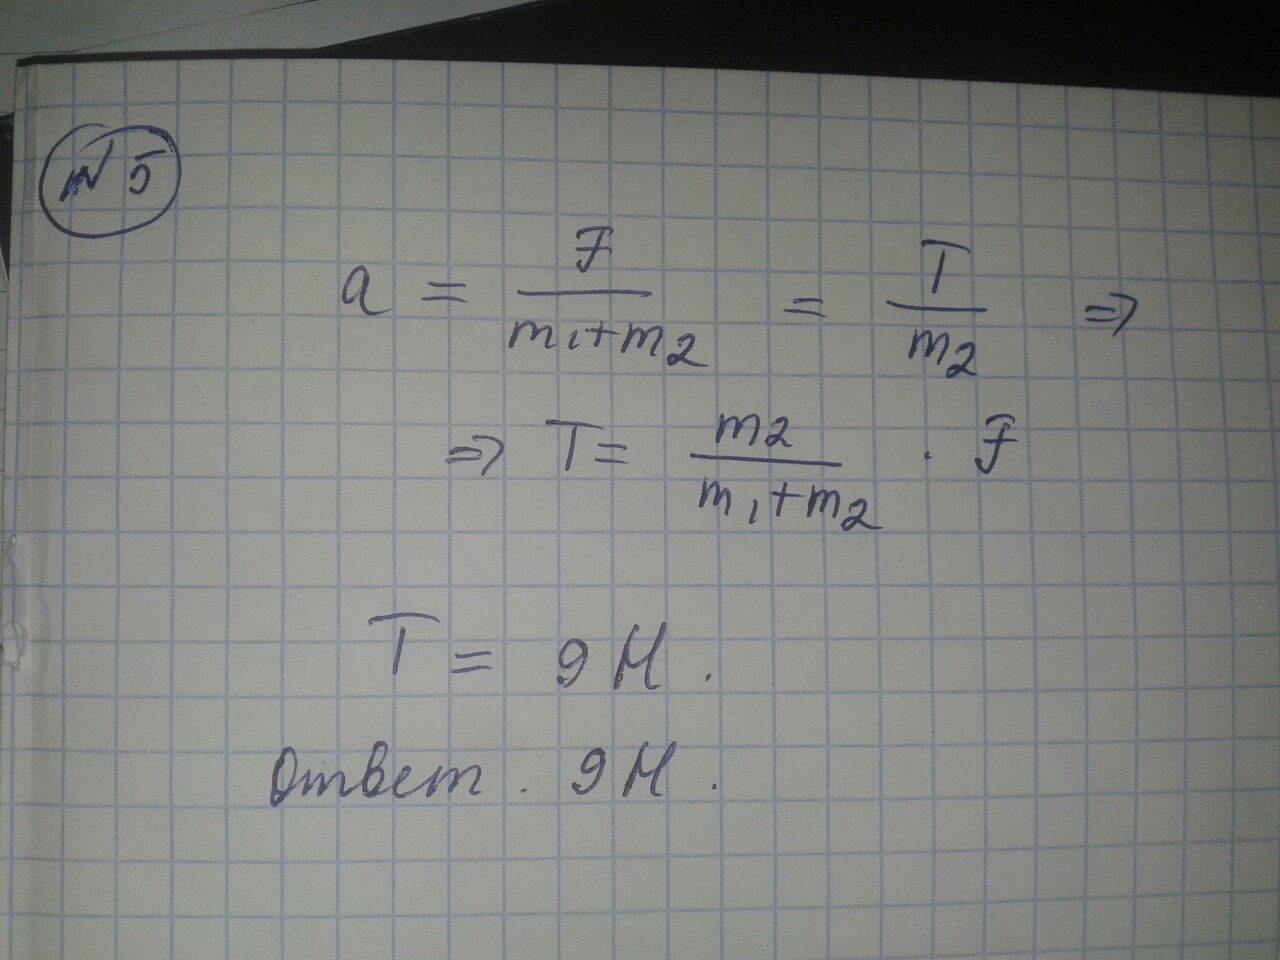 №5
a = F/(m₁+m₂) = T/m₂ ⇒
⇒ T = m₂/(m₁+m₂) · F
T = 9 Н.
Ответ. 9 Н.